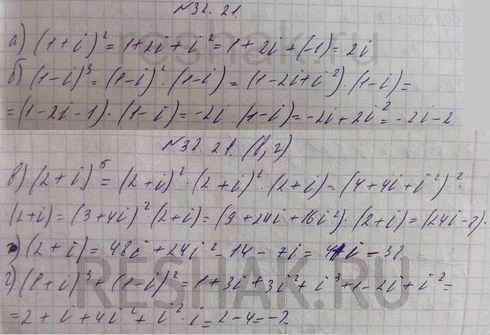 №32.21.
а) (1+i)² = 1+2i+i² = 1+2i+(-1) = 2i
б) (1-i)³ = (1-i)²·(1-i) = (1-2i+i²)·(1-i) =
= (1-2i-1)·(1-i) = -2i·(1-i) = -2i+2i² = -2i-2.
№32.21.(в,г)
в) (2+i)⁵ = (2+i)²·(2+i)²·(2+i) = (4+4i+i²)²·
(2+i) = (3+4i)²(2+i) = (9+24i+16i²)·(2+i) = (24i-7)·
(2+i) = 48i+24i²-14-7i = 41i-38
г) (1+i)³+(1-i)² = 1+3i+3i²+i³+1-2i+i² =
= 2+i+4i²+i²·i = 2-4 = -2
reshak.ru
RESHAK.RU